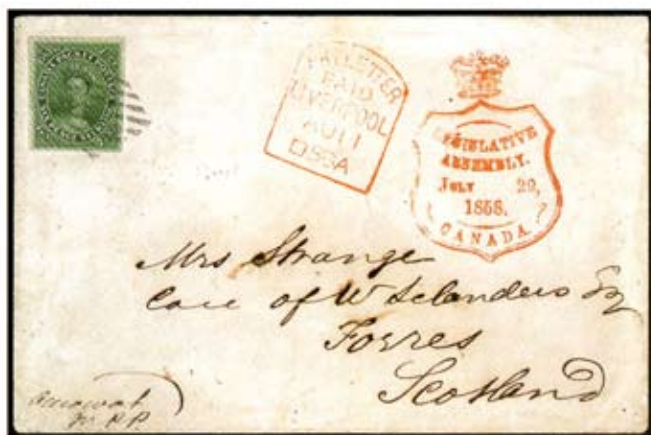 PKT LETTER
PAID
LIVERPOOL
AU 11
58
LEGISLATIVE
ASSEMBLY.
JULY 29,
1858.
CANADA.
Mrs Strange
Care of W Selanders Esq
Forres
Scotland